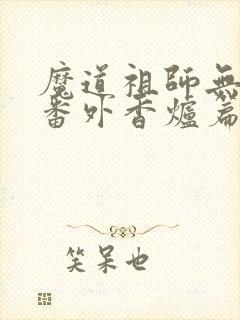 魔道祖師無
番外香爐篇
笑呆也